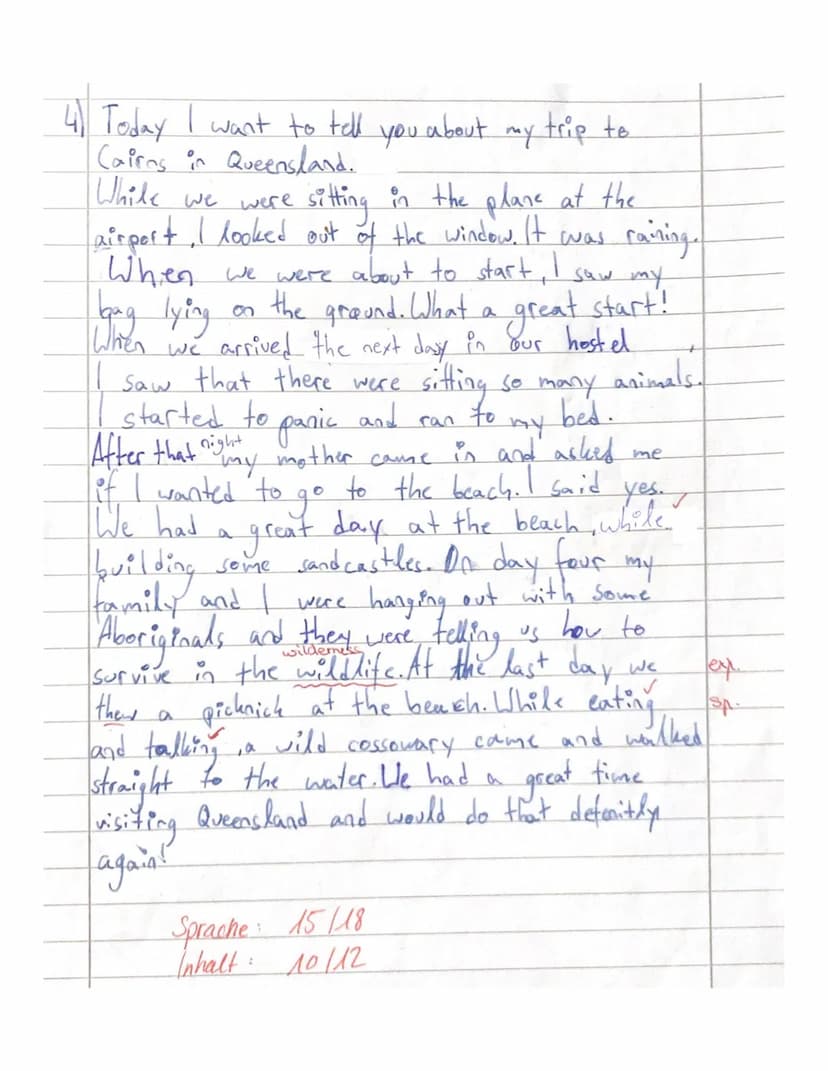 4) Today I want to tell you about my trip to
Cairns in Queensland.
While we were sitting in the plane at the
airport, I looked out of the window. It was raining.
When we were about to start, I saw my
bag lying on the ground. What a great start!
When we arrived the next day in our hostel,
I saw that there were sitting so many animals.
I started to panic and ran to my bed.
After that night my mother came in and asked me
if I wanted to go to the beach. I said yes.
We had a great day at the beach, while
building some sandcastles. On day four my
family and I were hanging out with some
Aboriginals and they were telling us how to
wilderness
survive in the wildlife. At the last day we ex.
thew a picknick at the beach. While eating sp.
and talking, a wild cossowary came and walked
straight to the water. We had a great time
visiting Queensland and would do that defenitly
again!
Sprache: 15/18
Inhalt: 10/12